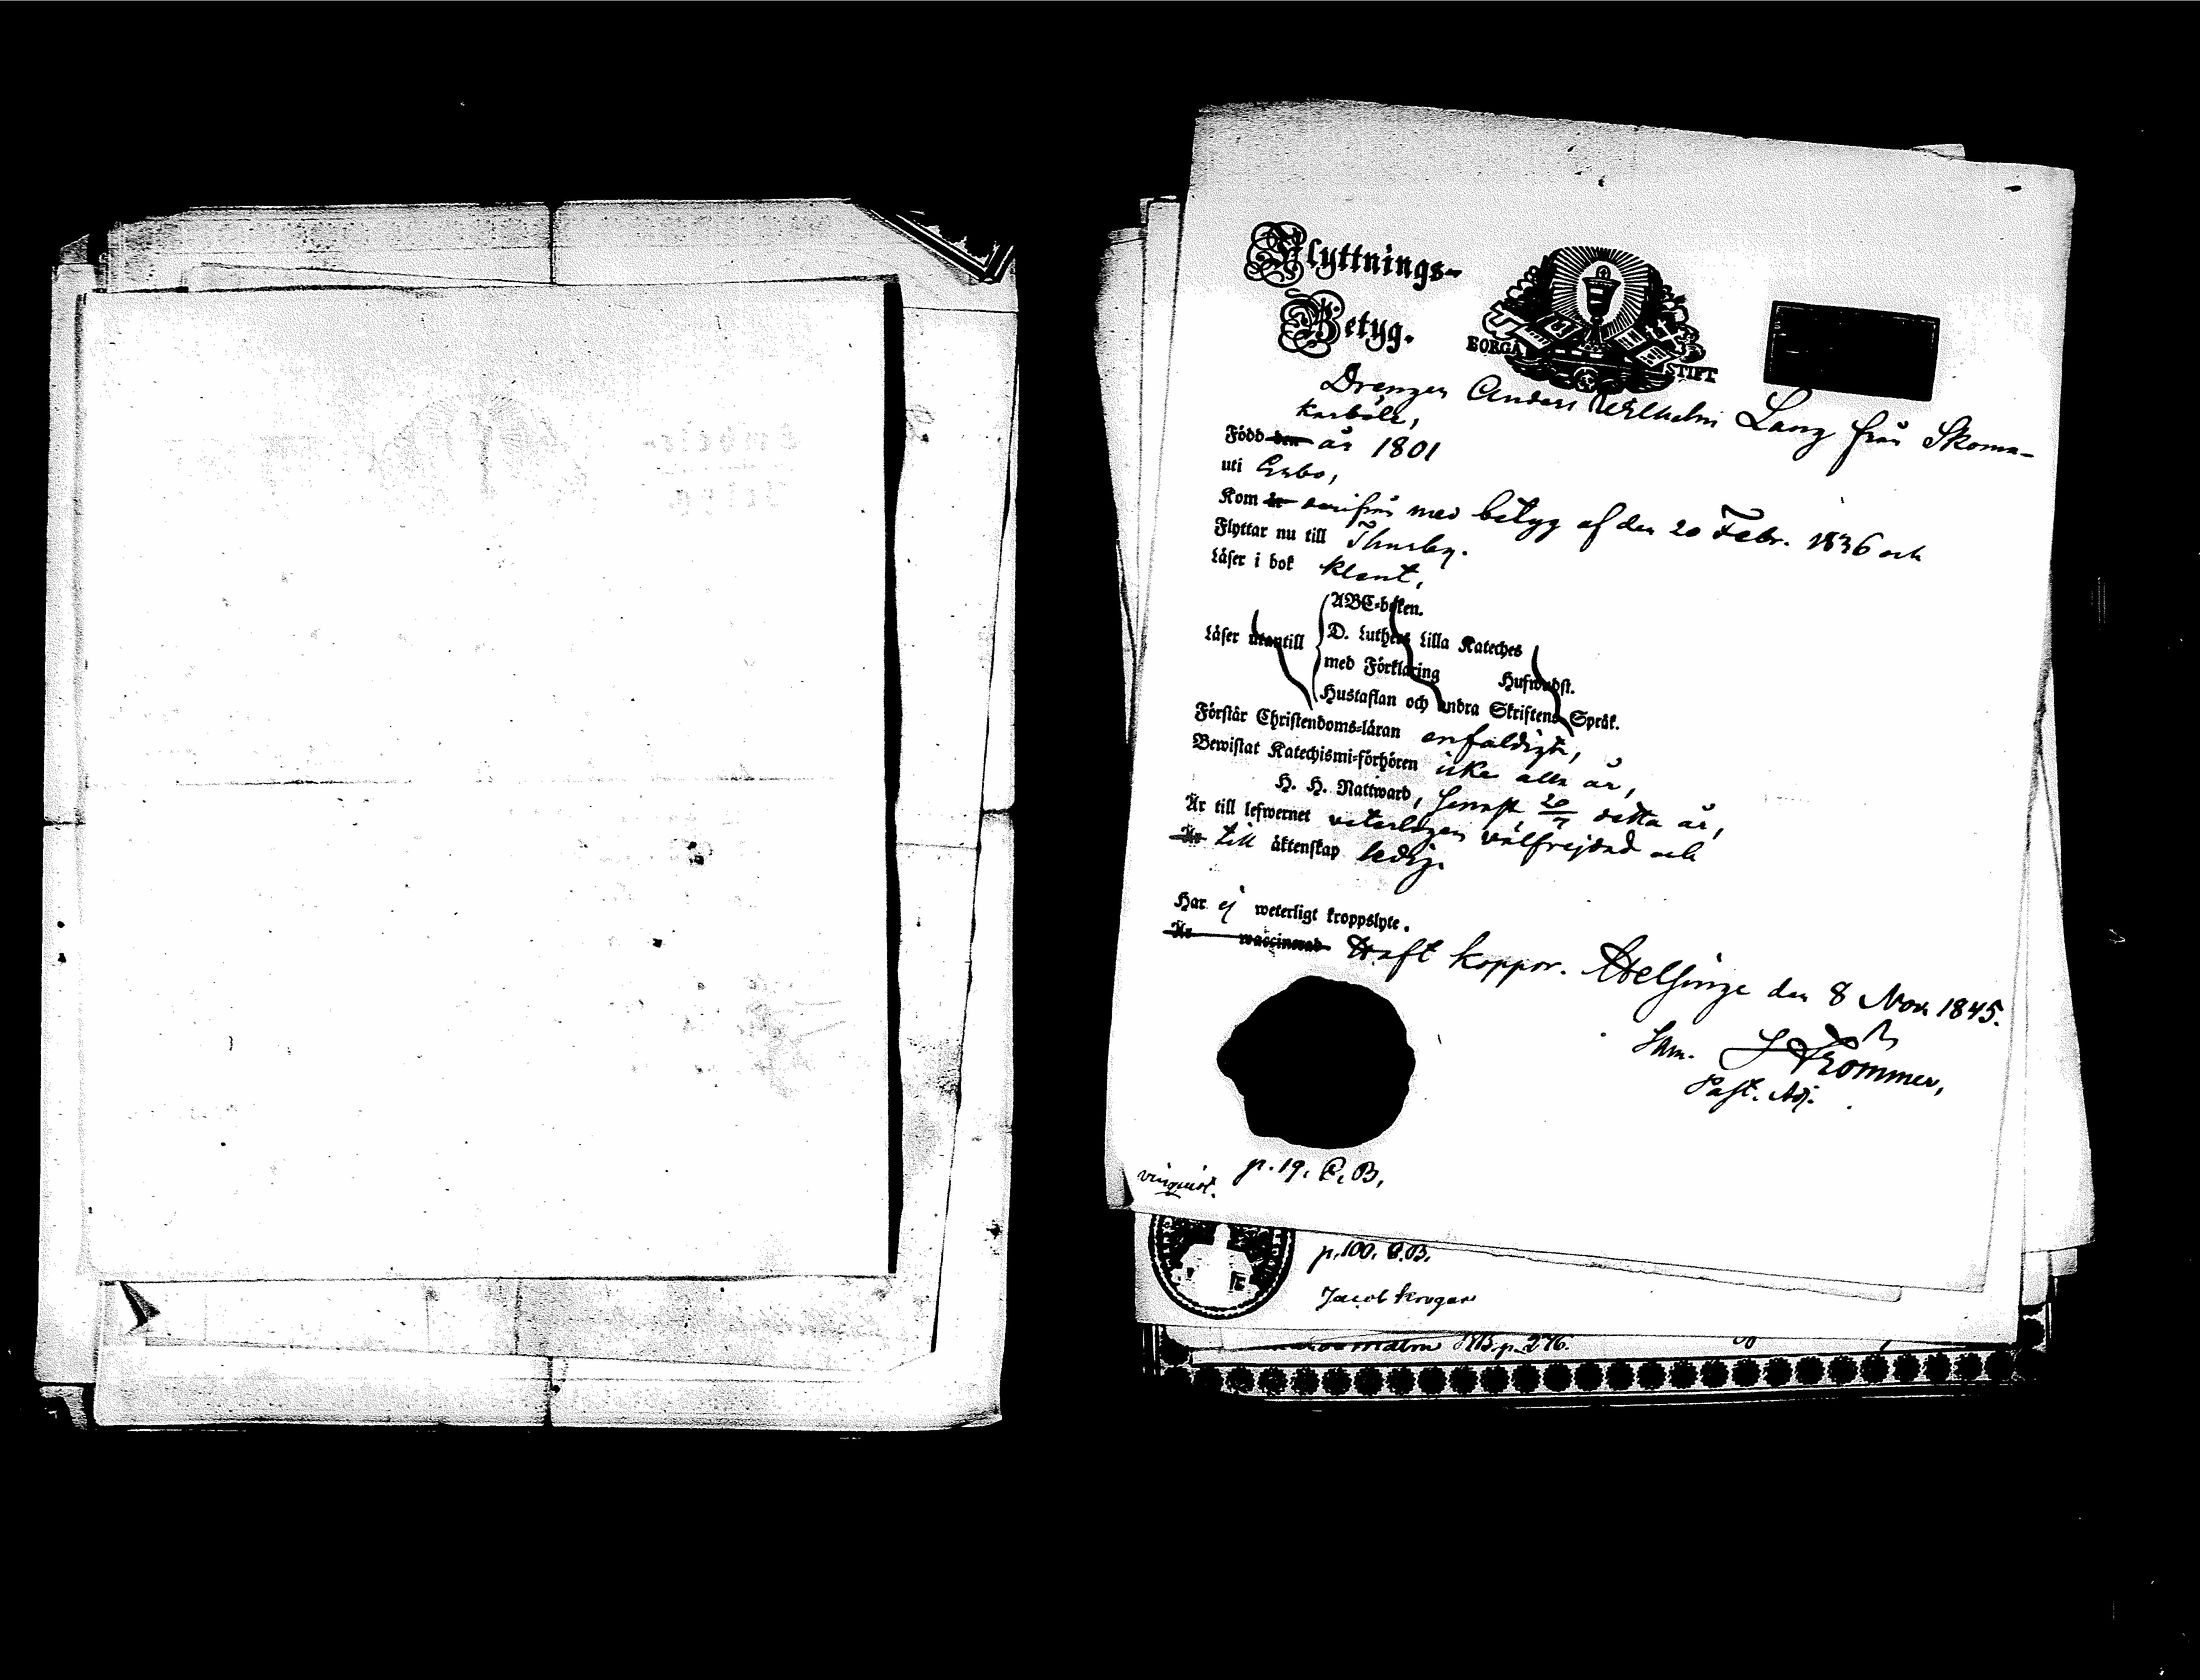 Flyttnings-
Betyg.
BORGÅ STIFT
Drengen Anders Wilhelm Lang från Skoma-
karböle,
Född den år 1801
uti Esbo,
Kom år derifrån med betyg af den 20 Febr. 1836 och
Flyttar nu till Thusby.
Läser i bok klent,
Läser utantill
ABC-boken.
D. Luthers Lilla Kateches
med Förklaring Hufwudst.
Hustaflan och andra Skriftens Språk.
Förstår Christendoms-läran enfaldigt,
Bewistat Katechismi-förhören icke alla år,
H. H. Nattward, senast 20/7 detta år,
Är till lefwernet veterligen välfrejdad och
Är till äktenskap ledig.
Har ej weterligt kroppslyte.
Är waccinerad Haft koppor. Helsinge den 8 Nov. 1845.
Sam. Strömmer,
Past. Adj.
p. 19. C. B.
p. 100. C. B.
Jacob Kroger
p. 276.